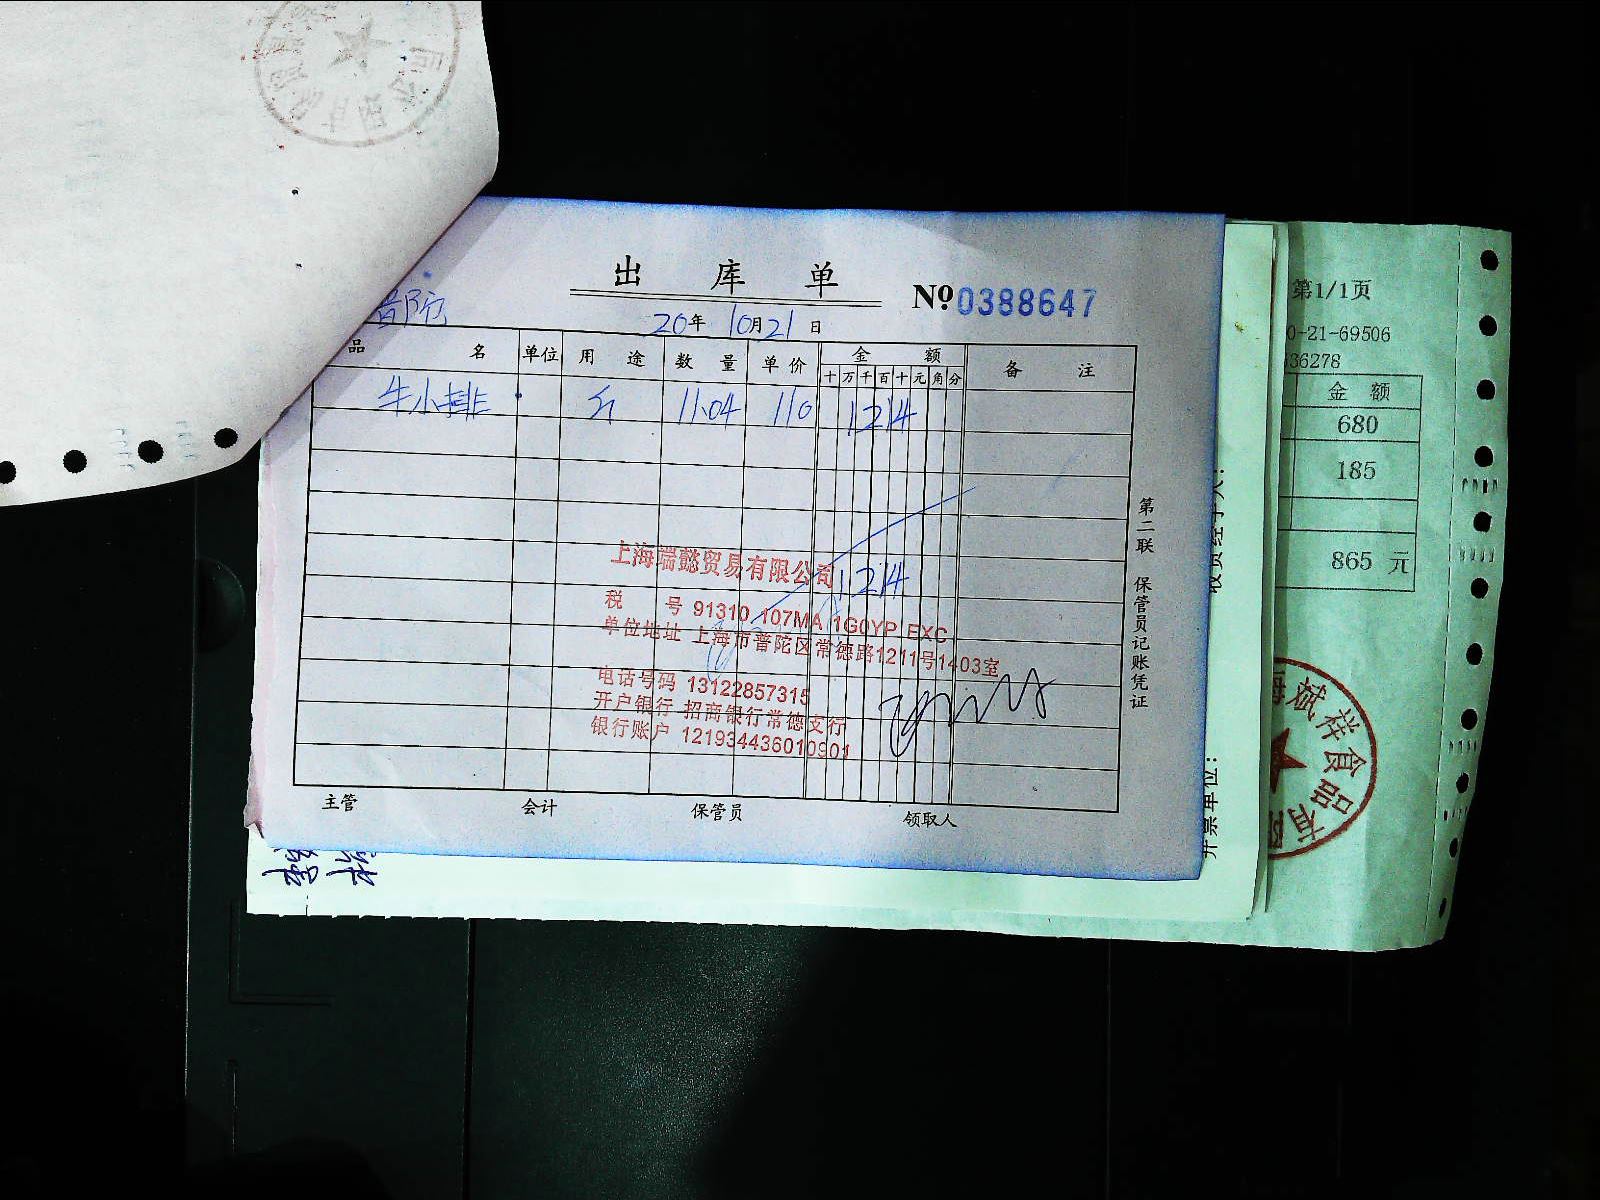 出 库 单
№ 0388647
普陀
20年 10月21日
品 名 单位 用 途 数 量 单 价 金 额 备 注
十 万 千 百 十 元 角 分
牛小排 斤 11.04 110 1214
1214
上海端懿贸易有限公司
税 号 91310 107MA 1G0YP EXC
单位地址 上海市普陀区常德路1211号1403室
电话号码 13122857315
开户银行 招商银行常德支行
银行账户 121934436010901
主管 会计 保管员 领取人
第二联 保管员记账凭证
开票单位:
第1/1页
0-21-69506
36278
金 额
680
185
865 元
海斌祥食品有限